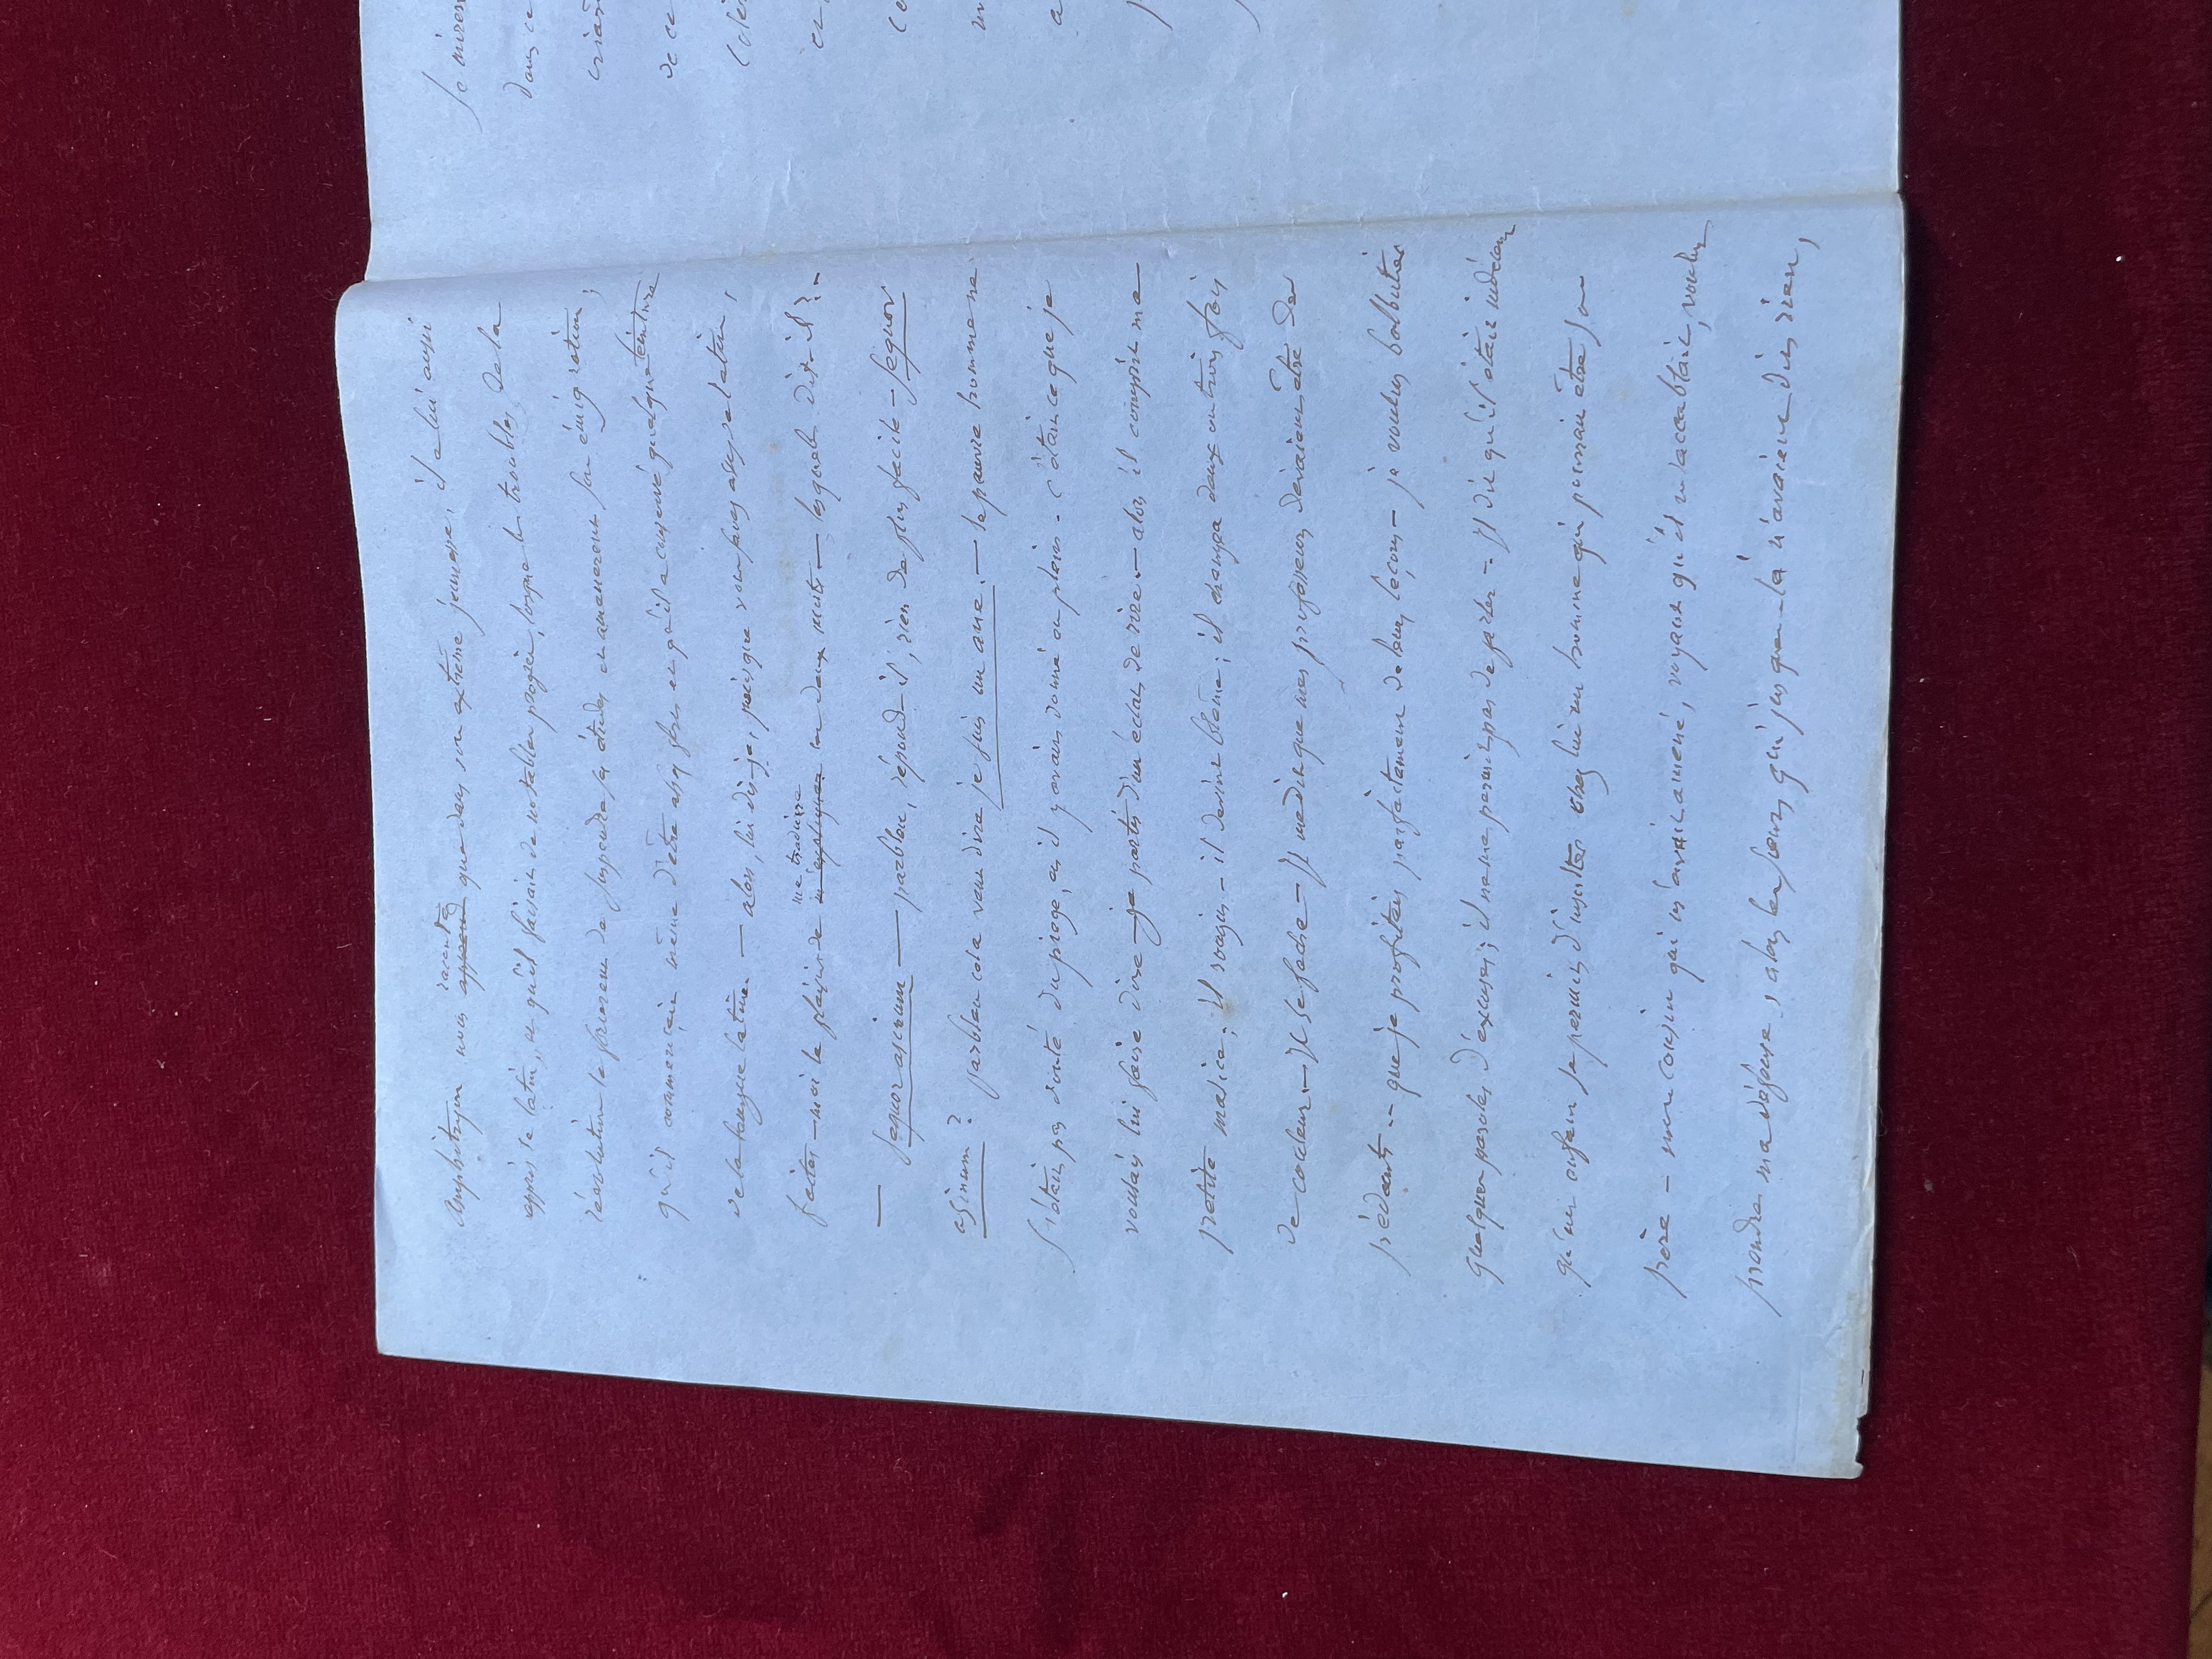 amphitryon nous apprend raconta que dans son extrême jeunesse, il a lui aussi
appris le latin, et qu'il faisait de notables progrès, lorsque les troubles de la
révolution le forcèrent de suspendre ses études et amenèrent son émigration,
qu'il commençait même d'être assez fort et qu'il a conservé quelque teinture
de la langue latine — alors, lui dis-je, puisque vous savez assez de latin,
faites-moi le plaisir de m'expliquer me traduire ces deux mots — lesquels dit-il ? —
— sequor asinum — parbleu, répond-il, rien de plus facile — sequor
asinum ? parbleu cela veut dire je suis un âne. — le pauvre homme ne
s'était pas douté du piège, et il y avait donné en plein. c'était ce que je
voulais lui faire dire — je partis d'un éclat de rire. — alors il comprit ma
petite malice; il rougit — il devint blême; il changea deux ou trois fois
de couleur. — Il se fâche — Il me dit que mes professeurs devraient être des
pédants. — que je profitais parfaitement de leurs leçons — je voulus balbutier
quelques paroles d'excuses; il ne me permit pas de parler — Il dit qu'il était indécent
qu'un enfant se permit d'insulter chez lui un homme qui pourrait être son
père — mon cousin qui m'avait amené, voyant qu'il m'accablait, voulut
prendre ma défense, alors les sœurs qui jusque-là n'avaient dit rien,
Je
dans ce
de ce